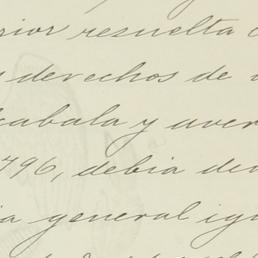 rior resuelta
derechos de
cabala y aver
796, debia de
ia general ig